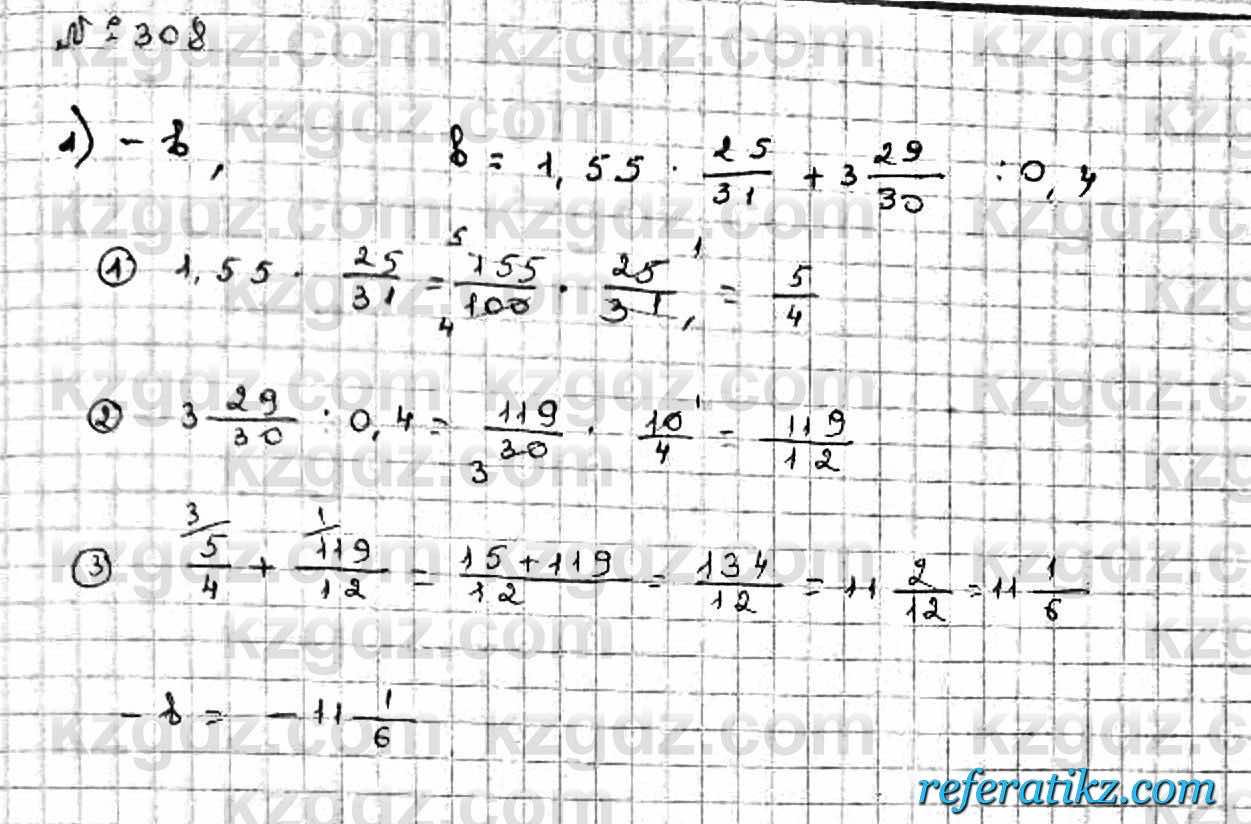 № 308
1) - b, b = 1,55 · 25/31 + 3 29/30 : 0,4
① 1,55 · 25/31 = 155/100 · 25/31 = 5/4
② 3 29/30 : 0,4 = 119/30 · 10/4 = 119/12
③ 5/4 + 119/12 = 15+119/12 = 134/12 = 11 2/12 = 11 1/6
- b = - 11 1/6
referatikz.com
kzgdz.com